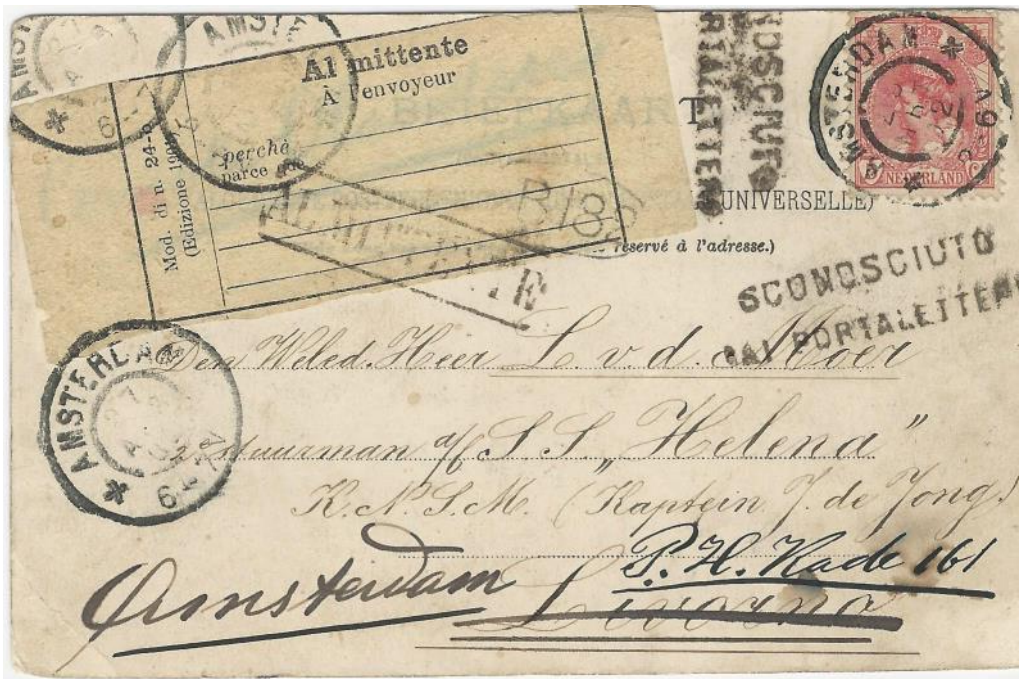 AMSTERDAM
AMSTE
Al mittente
À l'envoyeur
Mod. di n. 24-
(Edizione
perchè
parce que
AL MITTENTE
B/86
SCONOSCIUTO
AI PORTALETTERE
NEDERLAND
UNIVERSELLE)
réservé à l'adresse.)
SCONOSCIUTO
AI PORTALETTERE
AMSTERDAM
Den Weled. Heer L. v. d. Moer
2e Stuurman a/b S.S. „Helena"
K.N.S.M. (Kaptein J. de Jong)
P. H. Kade 161
Amsterdam
Livorno